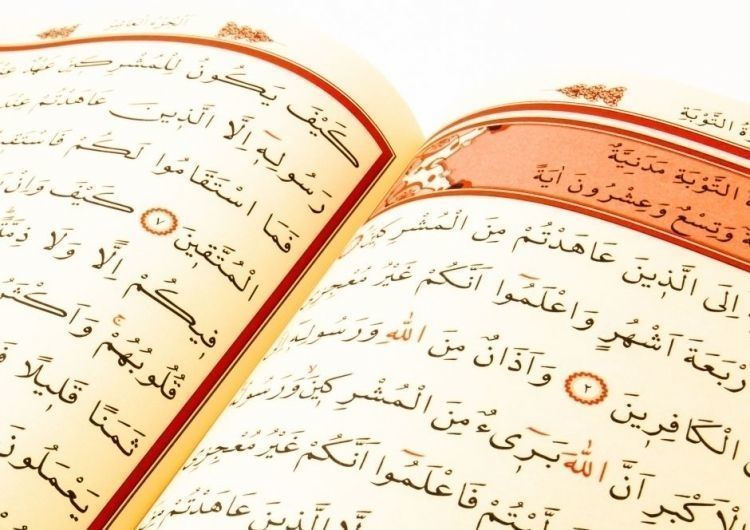 التَّوْبَةِ
التَّوْبَةِ مَدَنِيَّةٌ
وَتِسْعٌ وَعِشْرُونَ اٰيَةً
اِلَى الَّذ۪ينَ عَاهَدْتُمْ مِنَ الْمُشْرِك۪ينَ
رْبَعَةَ اَشْهُرٍ وَاعْلَمُوا اَنَّكُمْ غَيْرُ مُعْجِزِي
الْكَافِر۪ينَ ٢ وَاَذَانٌ مِنَ اللّٰهِ وَرَسُولِه۪
الْاَكْبَرِ اَنَّ اللّٰهَ بَر۪ٓيءٌ مِنَ الْمُشْرِك۪ينَ وَرَسُولُهُ
لَّيْتُمْ فَاعْلَمُوا اَنَّكُمْ غَيْرُ مُعْجِزِي
الَّذ۪ينَ عَاهَدْتُمْ
الجزء العاشر
كَيْفَ يَكُونُ لِلْمُشْرِك۪ينَ عَهْدٌ عِنْدَ
رَسُولِه۪ٓ اِلَّا الَّذ۪ينَ عَاهَدْتُمْ عِنْدَ
فَمَا اسْتَقَامُوا لَكُمْ فَاسْتَق۪
الْمُتَّق۪ينَ ٧ كَيْفَ وَاِنْ
ف۪يكُمْ اِلًّا وَلَا ذِمَّةً
قُلُوبُهُمْ وَاَكْثَرُ
ثَمَنًا قَل۪يلًا فَ
يَعْمَلُونَ